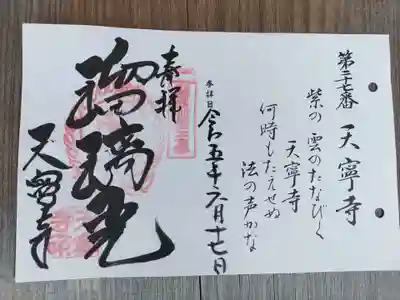 第二十七番 天寧寺
紫の 雲のたなびく
天寧寺
何時もたえせぬ
法の声かな
参拝日 令和五年六月十七日
奉拝
瑠璃光
天寧寺